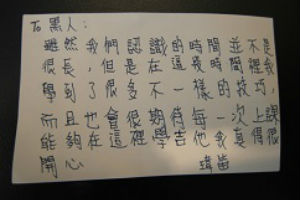 To 黑人:
雖然我們認識的時間並不是
很長,但是在這段時間裡我
學到了很多不一樣的技巧,
而且也會很期待每一次上課
能夠在這裡學吉他我真得很
開心 瑋苗